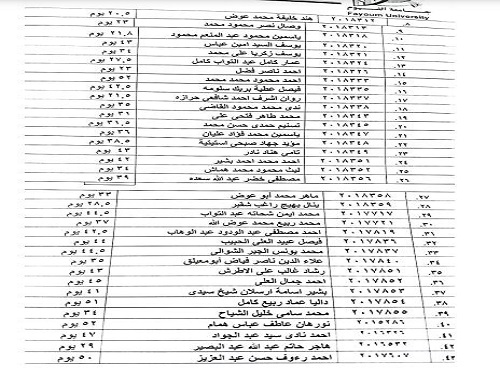 جامعة الفيوم
Fayoum University
٢٠١٨٣١٢ هند خليفة محمد عوض ٢٠,٥ يوم
٨. ٢٠١٨٣١٣ وصال نصر محمود محمد ٢٣ يوم
٩. ٢٠١٨٣١٨ ياسمين محمود عبد المنعم محمود ٢١,٨ يوم
١٠. ٢٠١٨٣٢٠ يوسف السيد امين عباس ٤٣ يوم
١١. ٢٠١٨٣٢١ يوسف زكريا على محمد ٣٤ يوم
١٢. ٢٠١٨٣٢٤ عمار كامل عبد التواب كامل ٢٧,٥ يوم
١٣. ٢٠١٨٣٢٦ احمد ناصر فضل ٢٣ يوم
١٤. ٢٠١٨٣٣٣ احمد محمود محمد محمد ٥٢ يوم
١٦. ٢٠١٨٣٣٥ فيصل عطية بريك سلومه ٤٢,٥ يوم
١٧. ٢٠١٨٣٣٧ روان اشرف احمد شافعي حرازه ٢١,٥ يوم
١٨. ٢٠١٨٣٣٨ ندى محمد محمود القاضي ٣٥ يوم
١٩. ٢٠١٨٣٤١ محمد طاهر فتحى على ٣١ يوم
٢٠. ٢٠١٨٣٤٥ تسنيم حمدى حسن محمد ٣١,٥ يوم
٢١. ٢٠١٨٣٤٧ ياسمين محمد فؤاد عليان ٣٦ يوم
٢٢. ٢٠١٨٣٤٨ مؤيد جهاد صبحى استيتية ٣٨,٥ يوم
٢٣. ٢٠١٨٣٤٩ تامى هناد نادر ٤٣ يوم
٢٤. ٢٠١٨٣٥١ احمد محمد احمد بشير ٤٢ يوم
٢٥. ٢٠١٨٣٥٢ ليث محمود محمد هماش ٣٤ يوم
٢٦. ٢٠١٨٣٥٦ مصطفى خضر عبد الله سعده ٣٩ يوم
٢٧. ٢٠١٨٣٥٨ ماهر محمد أبو عوض ٣٣ يوم
٢٨. ٢٠١٨٣٥٩ ينال بهيج راغب شقير ٢٨,٥ يوم
٢٩. ٢٠١٧٧١٧ محمد ايمن شحاته عبد التواب ٤٤,٥ يوم
٣٠. ٢٠١٧٧١٠ محمد ربيع محمد عوض الله ٣٧ يوم
٣١. ٢٠١٧٨١٩ احمد مصطفى عبد الودود عبد الوهاب ٤٢,٥ يوم
٣٢. ٢٠١٧٨٣٦ فيصل عبيد العلى الحبيب ٤٤ يوم
٣٣. ٢٠١٧٨٣٧ محمد يونس الجبر الشوالى ٤٤,٥ يوم
٣٤. ٢٠١٧٨٤٠ علاء الدين ناصر فياض أبو معيلق ٣٥ يوم
٣٥. ٢٠١٧٨٥١ رشاد غالب على الاطرش ٤٣ يوم
٣٦. ٢٠١٧٨٥٢ احمد جمال العلى ٤٥ يوم
٣٧. ٢٠١٧٨٥٣ بشير اسامة ارسلان شيخ سيدى ٤١ يوم
٣٨. ٢٠١٧٨٥٤ داليا عماد ربيع كامل ٥١ يوم
٣٩. ٢٠١٧٨٥٥ محمد سامى خليل الشياح ٣٤ يوم
٤٠. ٢٠١٥٢٨٦ نورهان عاطف عباس همام ٥٢ يوم
٤١. ٢٠١٦٣٢٦ احمد نادى سيد عبد الجواد ٤٧ يوم
٤٢. ٢٠١٦٥٣٢ هاجر حاتم عبد الله البصير ٢٩ يوم
٤٣. ٢٠١٧٦٠٧ احمد رءوف حسن عبد العزيز ٥٠ يوم